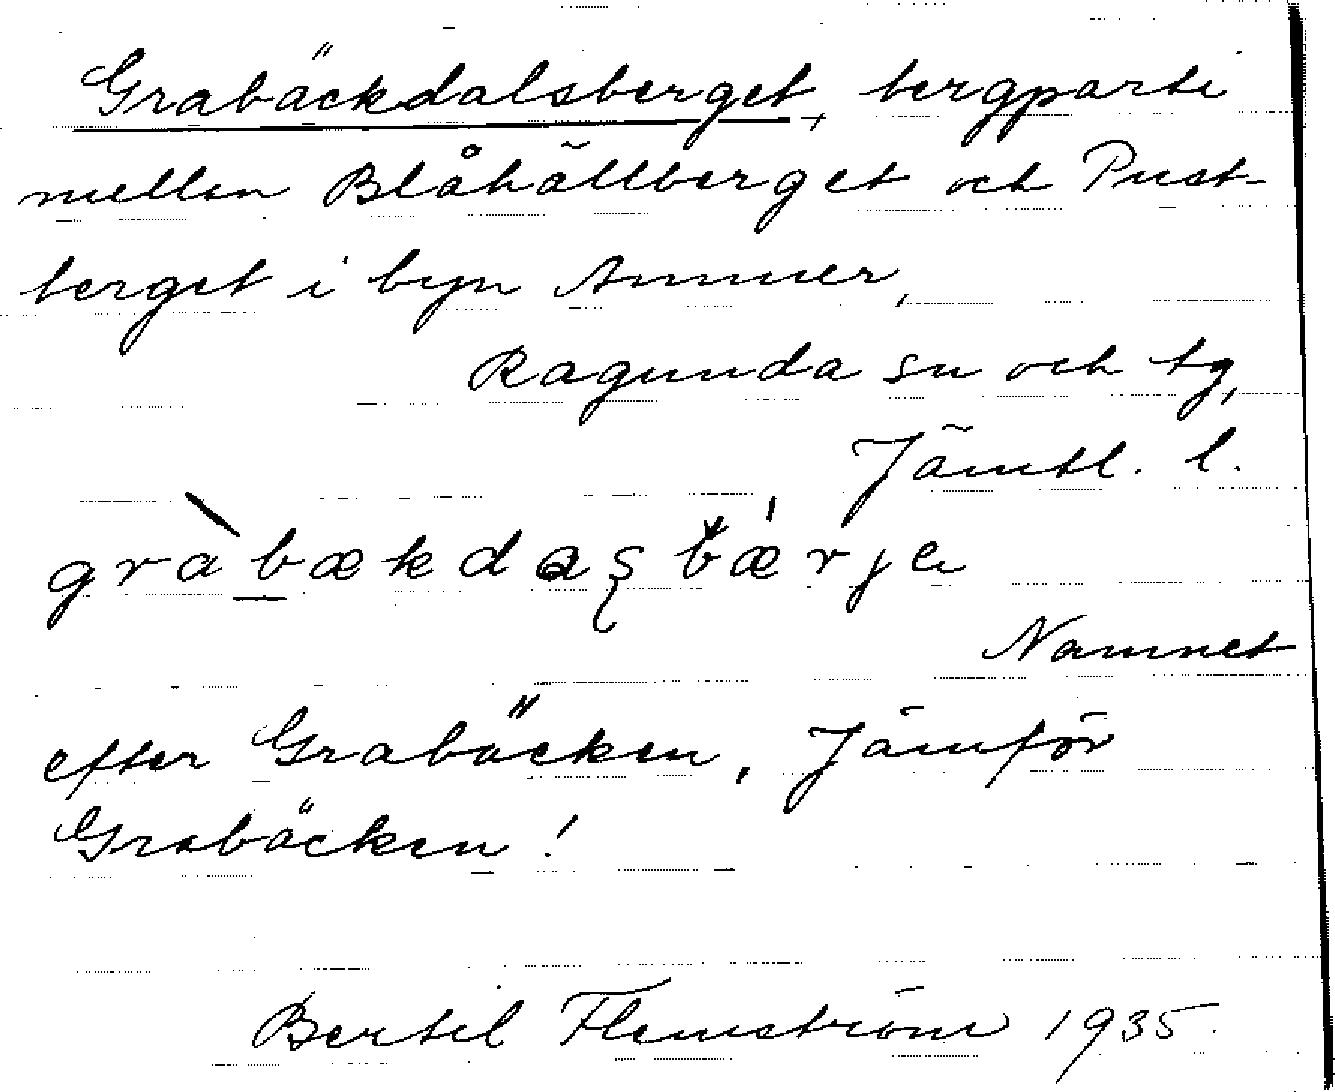 Grabäckdalsberget, bergparti
mellan Blåhällberget och Pust-
berget i byn Ammer,
Ragunda sn och tg,
Jämtl. l.
gràbækdaʂbǽrje
Namnet
efter Grabäcken, Jämför
Grabäcken!
Bertil Flemström 1935.